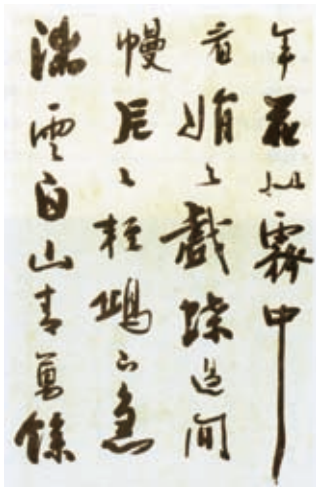 年花似霧中
看娟々戲蝶過間
幔片々輕鷗下急
湍雲白山青萬餘